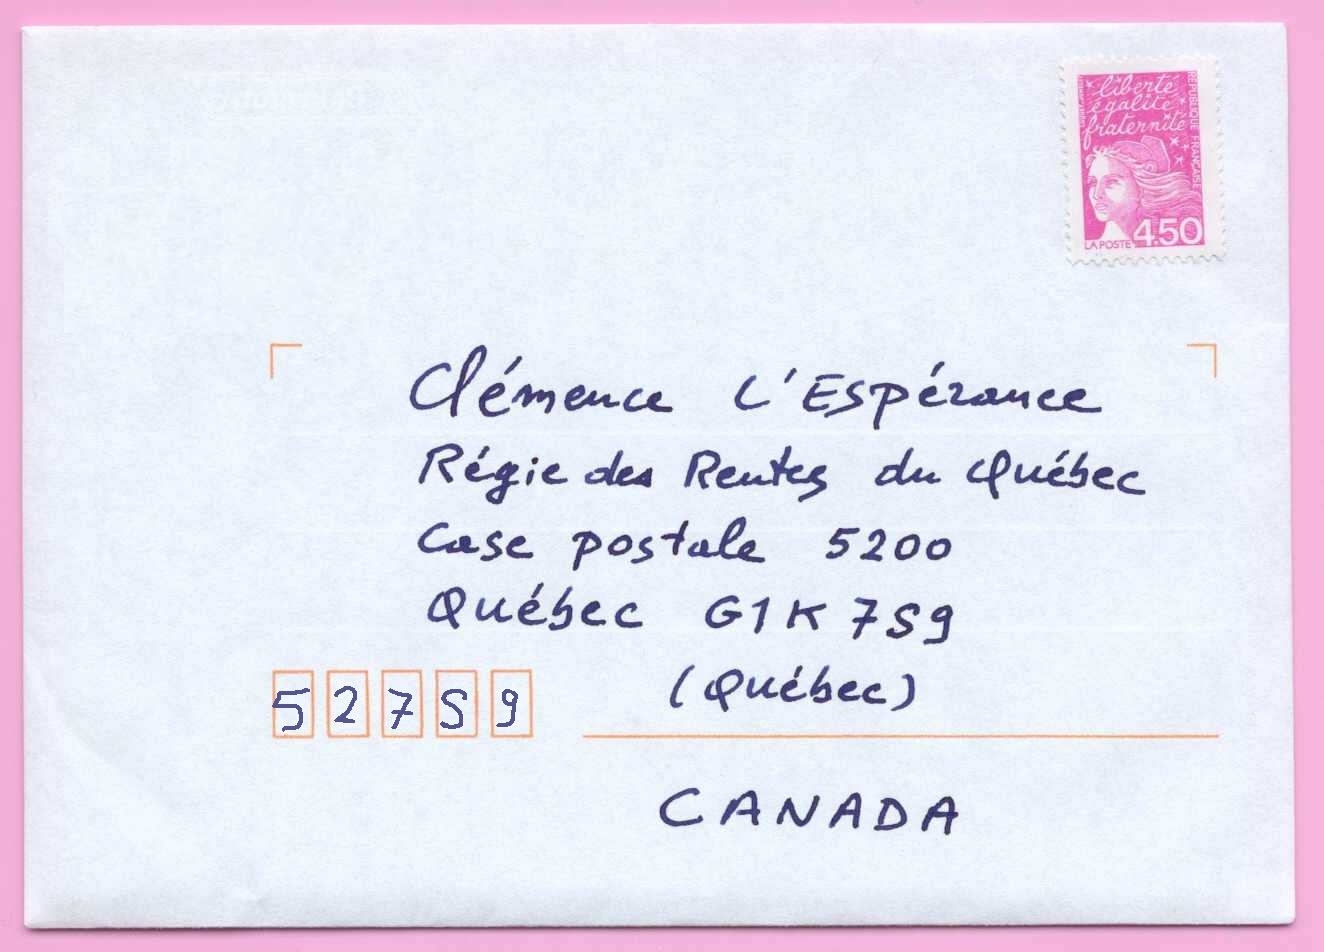 liberté
égalité
fraternité
RÉPUBLIQUE FRANÇAISE
LA POSTE 4.50
Clémence L'Espérance
Régie des Rentes du Québec
Case postale 5200
Québec G1K 7S9
(Québec)
527S9
CANADA